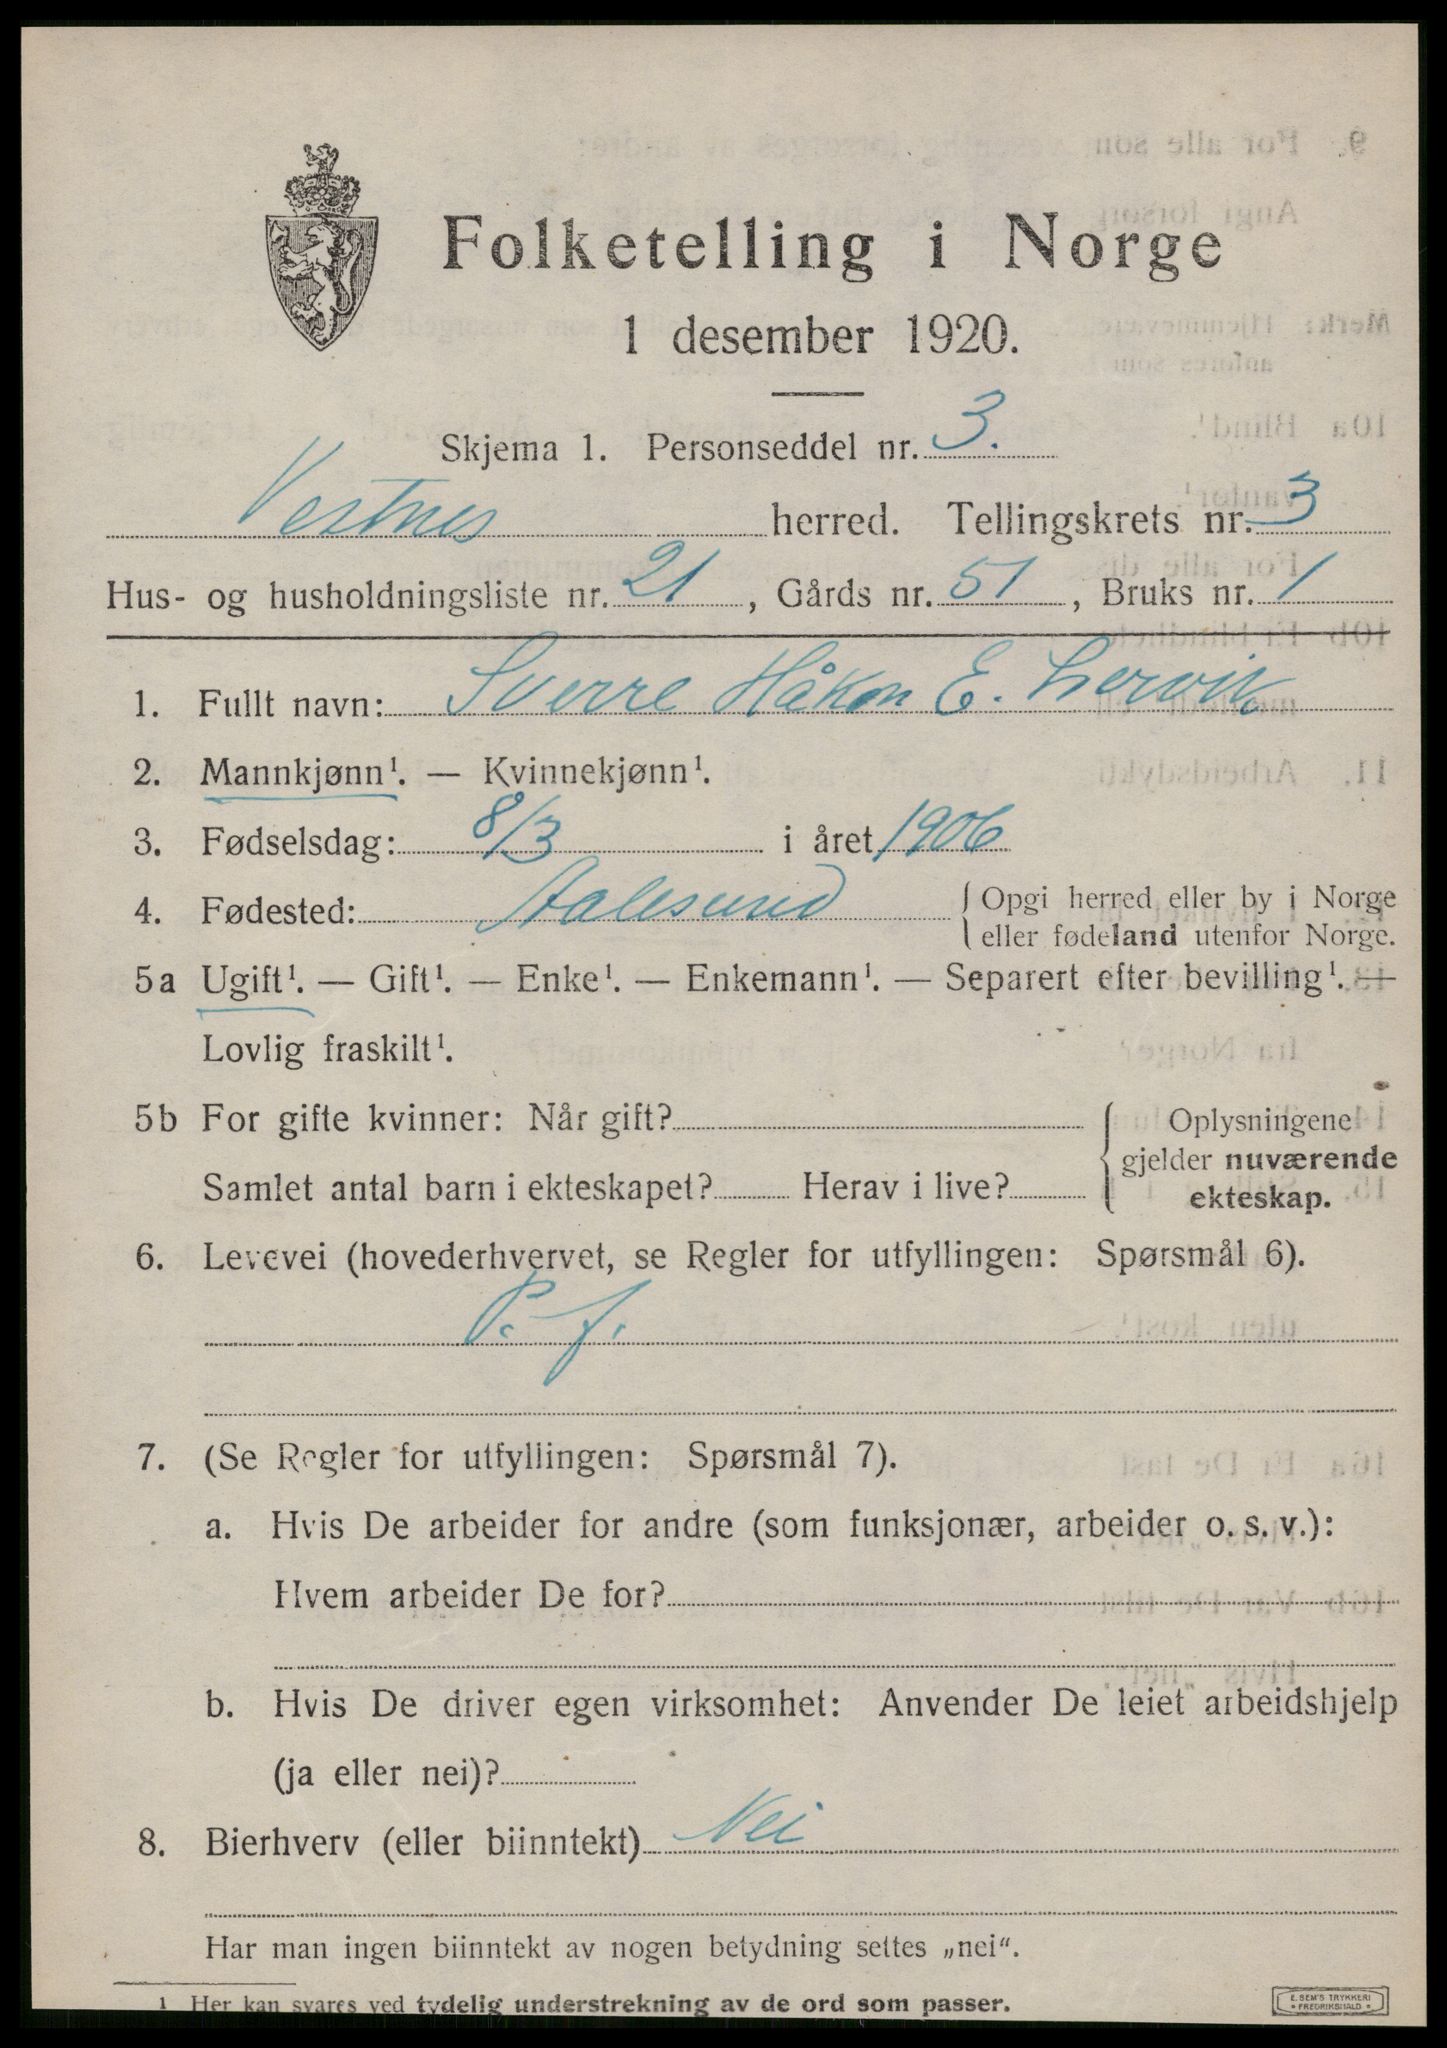 Folketelling i Norge
1 desember 1920.
Skjema 1. Personseddel nr. 3.
Vestnes herred. Tellingskrets nr. 3
Hus- og husholdningsliste nr. 21, Gårds nr. 51, Bruks nr. 1
1. Fullt navn: Sverre Håkon E. Lervik
2. Mannkjønn¹. — Kvinnekjønn¹.
3. Fødselsdag: 8/3 i året 1906
4. Fødested: Aalesund { Opgi herred eller by i Norge
eller fødeland utenfor Norge.
5a Ugift¹. — Gift¹. — Enke¹. — Enkemann¹. — Separert efter bevilling¹. —
Lovlig fraskilt¹.
5b For gifte kvinner: Når gift? { Oplysningene
gjelder nuværende
Samlet antal barn i ekteskapet? Herav i live? ekteskap.
6. Levevei (hovederhvervet, se Regler for utfyllingen: Spørsmål 6).
P. f.
7. (Se Regler for utfyllingen: Spørsmål 7).
a. Hvis De arbeider for andre (som funksjonær, arbeider o. s. v.):
Hvem arbeider De for?
b. Hvis De driver egen virksomhet: Anvender De leiet arbeidshjelp
(ja eller nei)?
8. Bierhverv (eller biinntekt) Nei
Har man ingen biinntekt av nogen betydning settes „nei“.
¹ Her kan svares ved tydelig understrekning av de ord som passer.
E. SEM'S TRYKKERI
• FREDRIKSHALD •